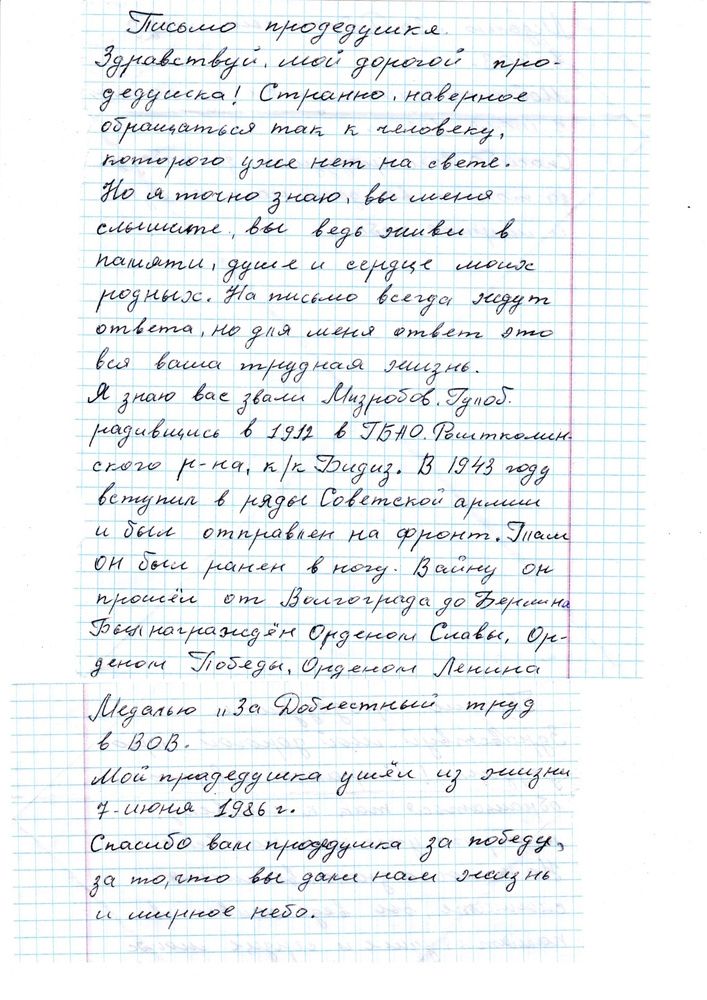 Письмо продедушке.
Здравствуй, мой дорогой про-
дедушка! Странно, наверное
обращаться так к человеку,
которого уже нет на свете.
Но я точно знаю, вы меня
слышите, вы ведь живы в
памяти, душе и сердце моих
родных. На письмо всегда ждут
ответа, но для меня ответ это
вся ваша трудная жизнь.
Я знаю вас звали Мизробов. Гулоб.
радивщись в 1912 в ГБАО. Роштколин-
ского р-на, к/к Бидиз. В 1943 году
вступил в ряды Советской армии
и был отправлен на фронт. Там
он был ранен в ногу. Вайну он
прошёл от Волгограда до Берлина
Был награждён Орденом Славы, Ор-
деном Победы, Орденом Ленина
Медалью „За Доблестный труд
в ВОВ.
Мой прадедушка ушёл из жизни
7-июня 1986 г.
Спасибо вам продедушка за победу,
за то, что вы дали нам жизнь
и мирное небо.